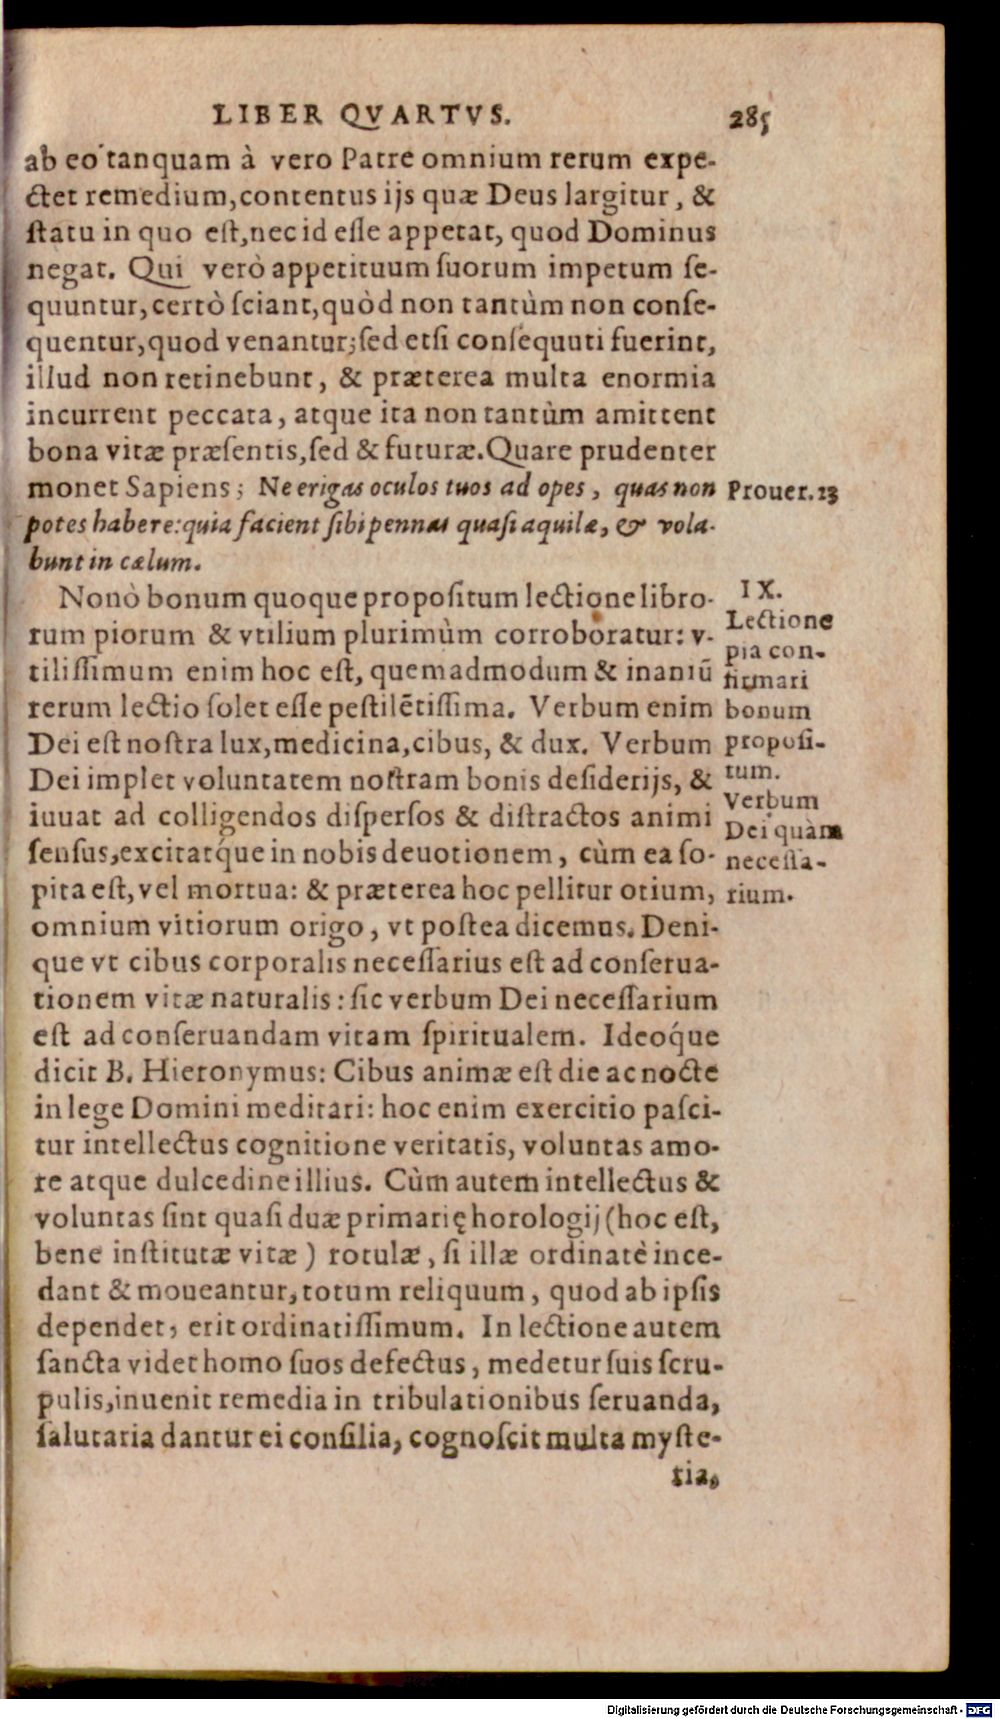 LIBER QVARTVS. 285
ab eo tanquam à vero Patre omnium rerum expe-
ctet remedium, contentus ijs quæ Deus largitur, &
ſtatu in quo eſt, nec id eſſe appetat, quod Dominus
negat. Qui verò appetituum ſuorum impetum ſe-
quuntur, certò ſciant, quòd non tantùm non conſe-
quentur, quod venantur; ſed etſi conſequuti fuerint,
illud non retinebunt, & præterea multa enormia
incurrent peccata, atque ita non tantùm amittent
bona vitæ præſentis, ſed & futuræ. Quare prudenter
monet Sapiens; Ne erigas oculos tuos ad opes, quas non
potes habere: quia facient ſibi pennas quaſi aquilæ, & vola-
bunt in cælum.
Prouer. 23
Nonò bonum quoque propoſitum lectione libro-
rum piorum & vtilium plurimùm corroboratur: v-
tiliſſimum enim hoc eſt, quemadmodum & inaniũ
rerum lectio ſolet eſſe peſtilẽtiſſima. Verbum enim
Dei eſt noſtra lux, medicina, cibus, & dux. Verbum
Dei implet voluntatem noſtram bonis deſiderijs, &
iuuat ad colligendos diſperſos & diſtractos animi
ſenſus, excitatq́ue in nobis deuotionem, cùm ea ſo-
pita eſt, vel mortua: & præterea hoc pellitur otium,
omnium vitiorum origo, vt poſtea dicemus. Deni-
que vt cibus corporalis neceſſarius eſt ad conſerua-
tionem vitæ naturalis: ſic verbum Dei neceſſarium
eſt ad conſeruandam vitam ſpiritualem. Ideoq́ue
dicit B. Hieronymus: Cibus animæ eſt die ac nocte
in lege Domini meditari: hoc enim exercitio paſci-
tur intellectus cognitione veritatis, voluntas amo-
re atque dulcedine illius. Cùm autem intellectus &
voluntas ſint quaſi duæ primarię horologij (hoc eſt,
bene inſtitutæ vitæ) rotulæ, ſi illæ ordinatè ince-
dant & moueantur, totum reliquum, quod ab ipſis
dependet, erit ordinatiſſimum. In lectione autem
ſancta videt homo ſuos defectus, medetur ſuis ſcru-
pulis, inuenit remedia in tribulationibus ſeruanda,
ſalutaria dantur ei conſilia, cognoſcit multa myſte-
ria,
IX.
Lectione
pia con-
firmari
bonum
propoſi-
tum.
Verbum
Dei quàm
neceſſa-
rium.
Digitalisierung gefördert durch die Deutsche Forschungsgemeinschaft - DFG